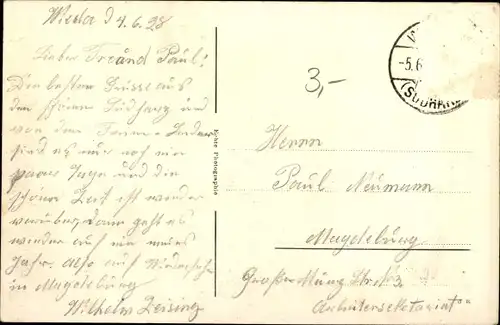 Wieda d 4.6.28
Lieber Freund Paul!
Die besten Grüsse aus
dem schönen Südharz und
von dem
sind es nur noch ein
paar Tage und die
schöne Zeit ist wieder
vorüber, dann geht es
wieder auf ein neues
Jahr. Also auf Wiedersehn
in Magdeburg
Wilhelm Zeising
Echte Photographie
-5.6
(SÜDHAR
3,-
Herrn
Paul Neumann
Magdeburg
Große Münz Str. N 3
Arbeitersekretariat